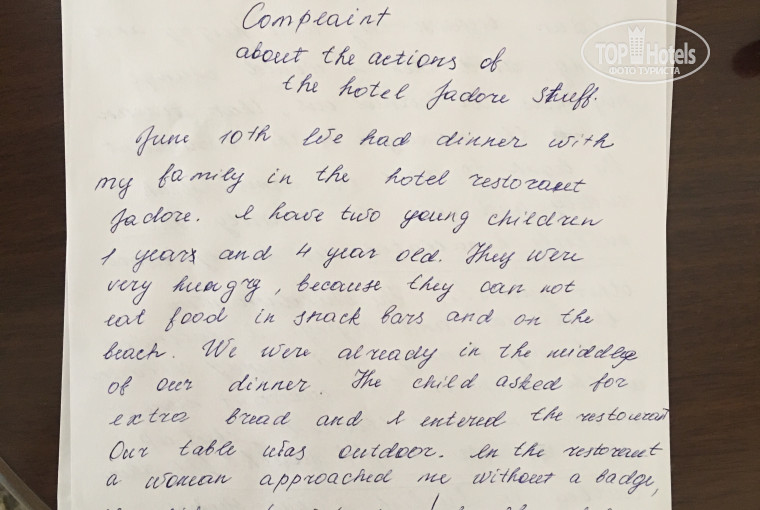 Complaint
TOP Hotels
ФОТО ТУРИСТА
about the actions of
the hotel Jadore stuff.
June 10th We had dinner with
my family in the hotel restoraet
Jadore. I have two young children
1 years and 4 year old. They were
very hungry, because they can not
eat food in snack bars and on the
beach. We were already in the middle
of our dinner. The child asked for
extra bread and I entered the restourant
Our table was outdoor. In the restorant
a woman approached me without a badge,